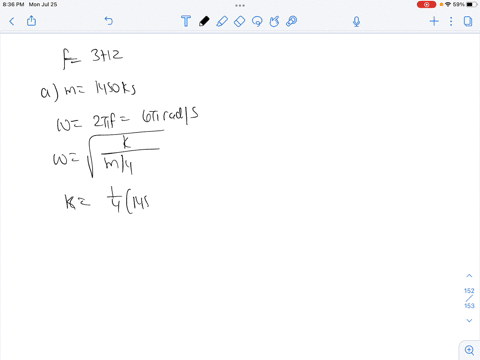 8:36 PM Mon Jul 25
59%
f= 3Hz
a) m= 1450 kg
ω= 2πf= 6π rad/s
ω= √(k/(m/4))
k= 1/4(145
152
153